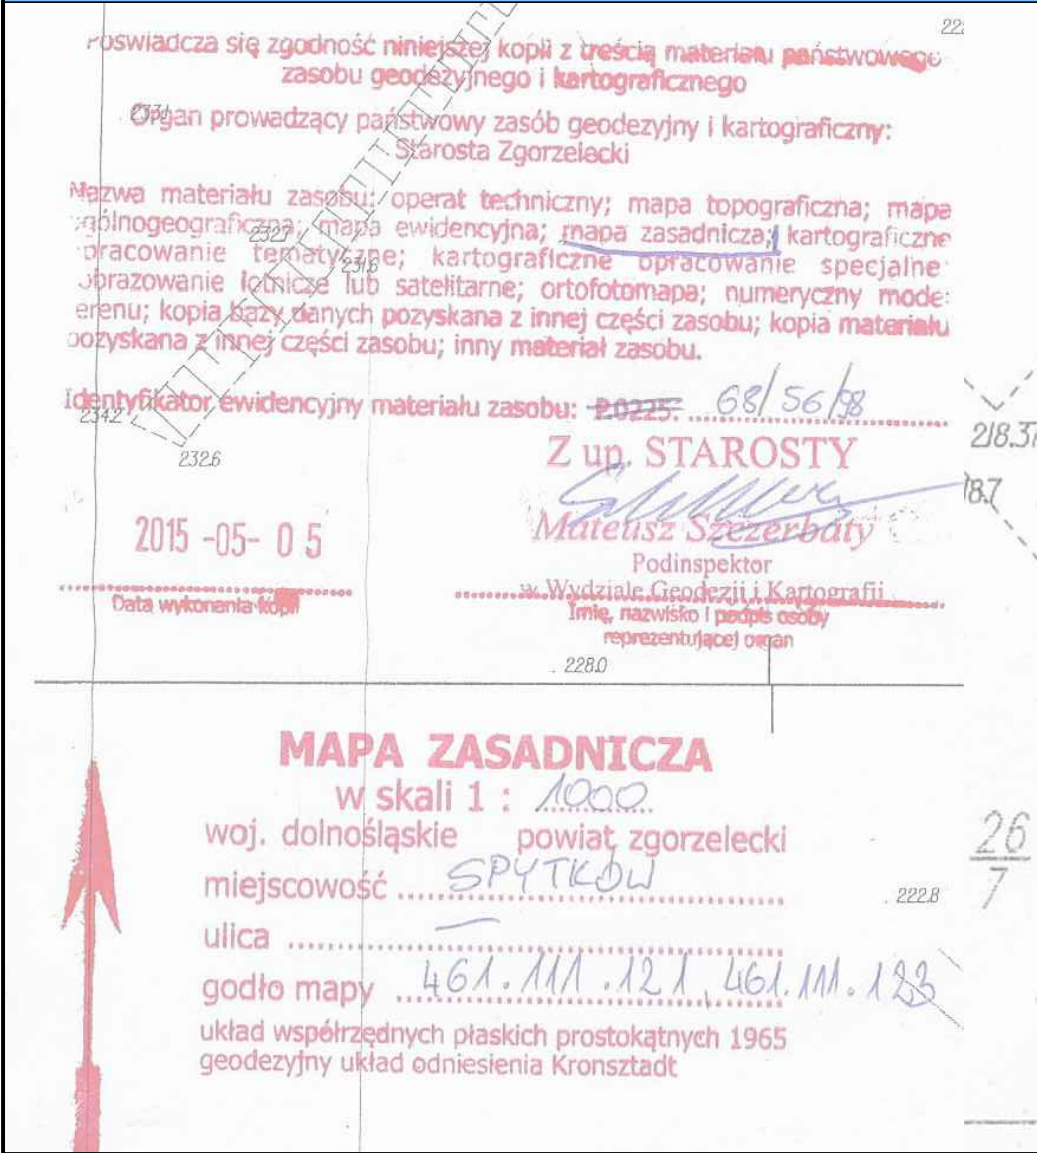 22
Poświadcza się zgodność niniejszej kopii z treścią materiału państwowego
zasobu geodezyjnego i kartograficznego
233.1
Organ prowadzący państwowy zasób geodezyjny i kartograficzny:
Starosta Zgorzelecki
Nazwa materiału zasobu: operat techniczny; mapa topograficzna; mapa
ogólnogeograficzna; mapa ewidencyjna; mapa zasadnicza; kartograficzne
232.7
opracowanie tematyczne; kartograficzne opracowanie specjalne
231.6
obrazowanie lotnicze lub satelitarne; ortofotomapa; numeryczny model
terenu; kopia bazy danych pozyskana z innej części zasobu; kopia materiału
pozyskana z innej części zasobu; inny materiał zasobu.
Identyfikator ewidencyjny materiału zasobu: P.0225. 68/56/98
234.2
218.37
232.6
Z up. STAROSTY
18.7
2015 -05- 05
Mateusz Szczerbaty
Podinspektor
w Wydziale Geodezji i Kartografii
Data wykonania kopii
Imię, nazwisko i podpis osoby
reprezentującej organ
228.0
MAPA ZASADNICZA
w skali 1 : 1000
woj. dolnośląskie powiat zgorzelecki
26
7
miejscowość SPYTKÓW
222.8
ulica —
godło mapy 461.111.121, 461.111.123
układ współrzędnych płaskich prostokątnych 1965
geodezyjny układ odniesienia Kronsztadt